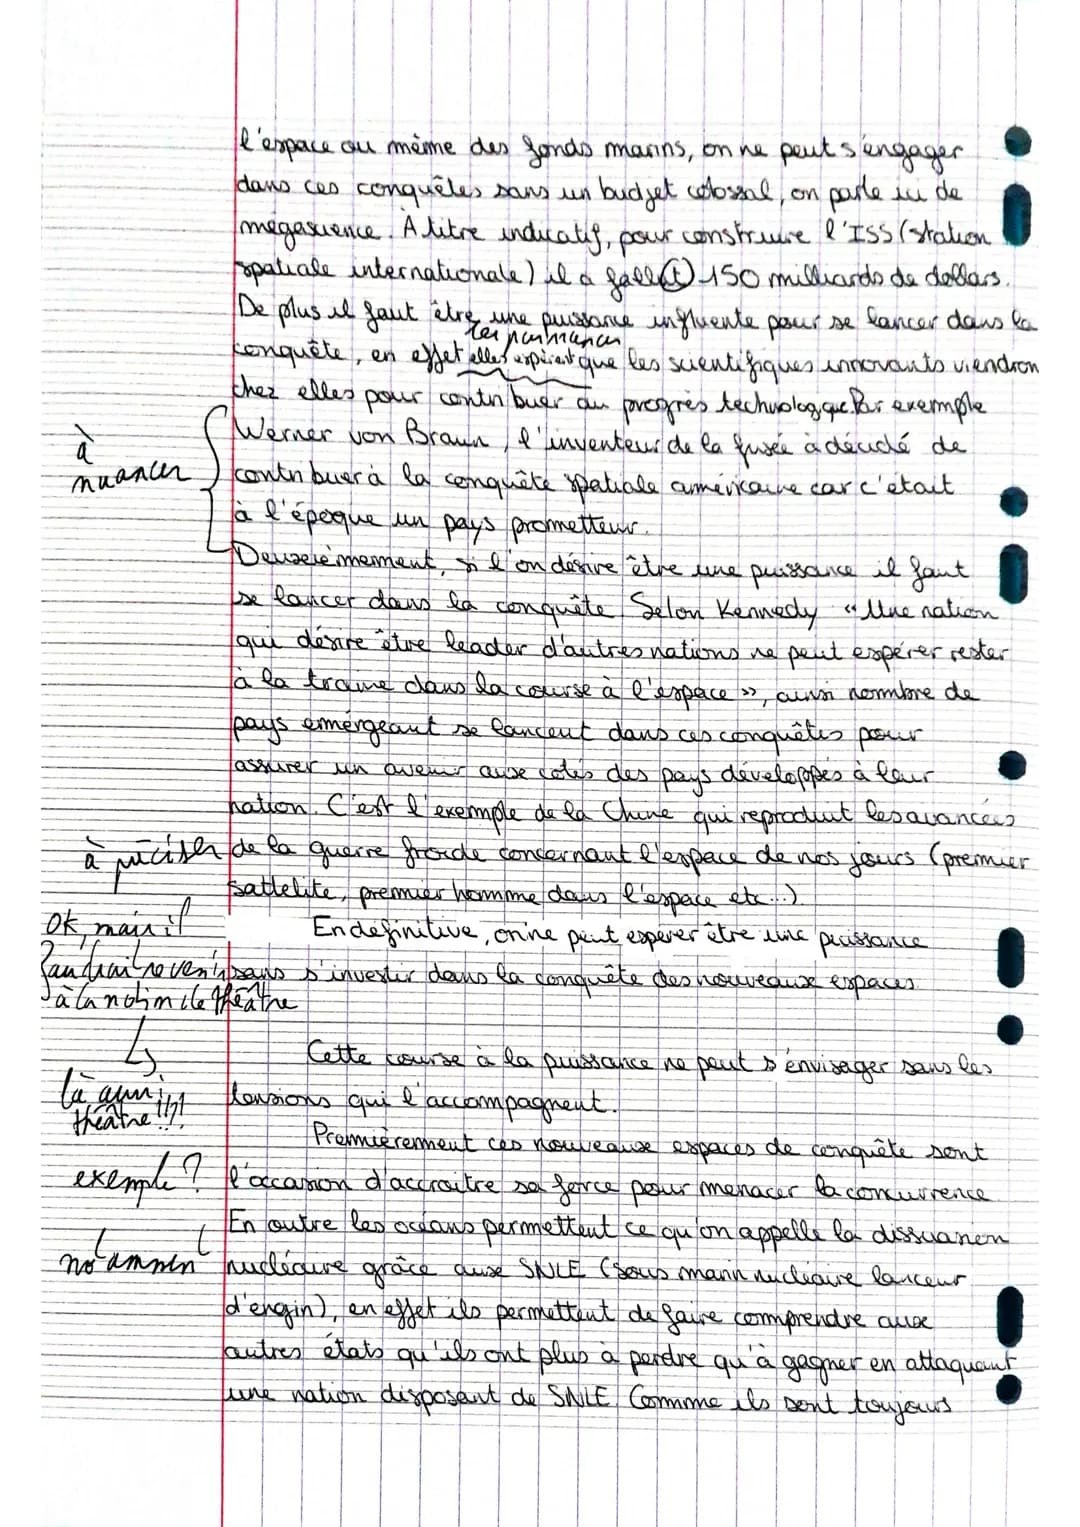 l'espace ou même des fonds marins, on ne peut s'engager
dans ces conquêtes sans un budget colossal, on parle ici de
mégascience. À titre indicatif, pour construire l'ISS (station
spatiale internationale) il a fallut 150 milliards de dollars.
De plus il faut être une puissance influente pour se lancer dans la
les puissances
conquête, en effet elles espèrent que les scientifiques innovants viendron
chez elles pour contribuer au progrès technologique. Par exemple
Werner von Braun, l'inventeur de la fusée à décidé de
à
nuancer
contribuer à la conquête spatiale américaine car c'était
à l'époque un pays prometteur.
Deuxièmement, si l'on désire être une puissance il faut
se lancer dans la conquête. Selon Kennedy "Une nation
qui désire être leader d'autres nations ne peut espérer rester
à la traine dans la course à l'espace", ainsi nombre de
pays émérgeant se lancent dans ces conquêtes pour
assurer un avenir aux cotés des pays développés à leur
nation. C'est l'exemple de la Chine qui reproduit les avancées
à préciser
de la guerre froide concernant l'espace de nos jours (premier
sattelite, premier homme dans l'espace etc...).
Ok, mais il
En définitive, on ne peut esperer être une puissance
faudrait revenir
sans s'investir dans la conquête des nouveaux espaces.
à la notion de théâtre
Cette course à la puissance ne peut s'énvisager sans les
là aussi
théâtre !!!!
tensions qui l'accompagnent.
Premièrement ces nouveaux espaces de conquête sont
exemple ?
l'occasion d'accroitre sa force pour menacer la concurrence.
En outre les océans permettent ce qu'on appelle la dissuasion
notamment
nucléaire grâce aux SNLE (sous marin nucléaire lanceur
d'engin), en effet ils permettent de faire comprendre aux
autres états qu'ils ont plus à perdre qu'à gagner en attaquant
une nation disposant de SNLE. Comme ils sont toujours